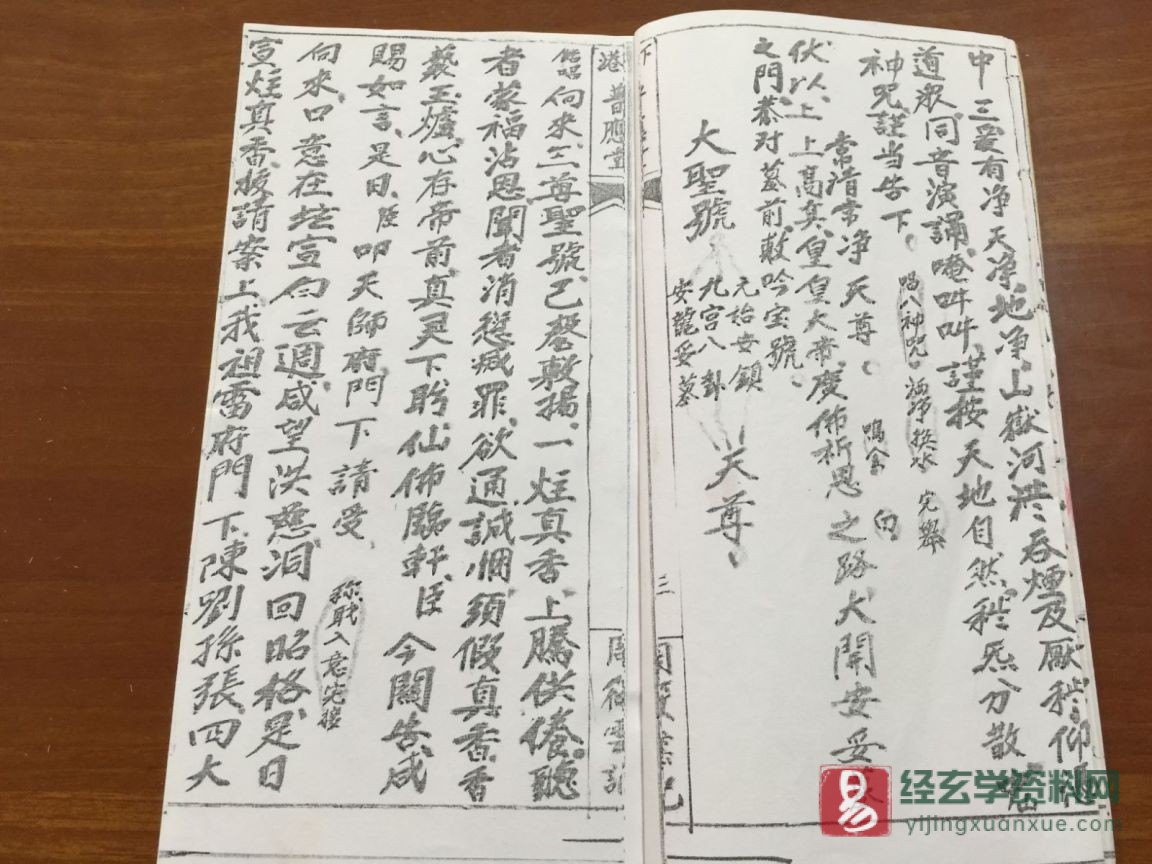 中三爰有净天净地净山嶽河洪吞煙及厭秽仰
道眾同音演誦唵吽吽謹按天地自然秽炁分散
神咒謹当告下
唱八神咒
完畢
常清常净天尊
鳴金
白
伏以上上高真皇皇大帝度佈祈恩之路大開安妥
之門恭对墓前敷吟宝號
大聖號
元始安鎮
九宮八卦
安龍妥墓
天尊
三
普應堂
向來三尊聖號已磬敷揚一炷真香上騰供養聽
者蒙福沾恩聞者消愆减罪欲通誠悃須假真香香
爇玉爐心存帝前真灵下盻仙佛臨軒臣今關告咸
賜如言是日臣叩天師府門下請受
称职入意完接
向來口意在坛宣向云週咸望洪慈洞回昭格是日
宣炷真香拔請案上我祖雷府門下陳劉孫張四大
易
经玄学资料网
yijingxuanxue.com